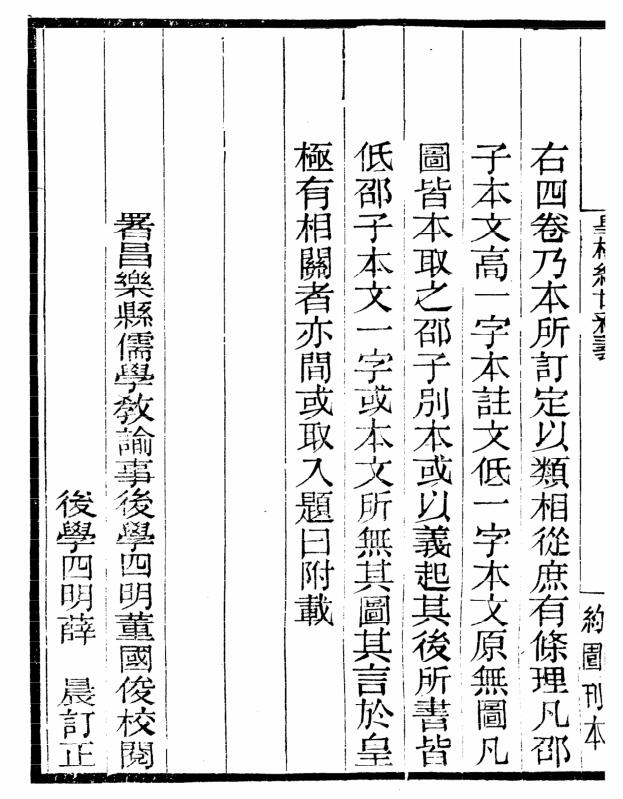 皇極經世釋義
約園刊本
右四卷乃本所訂定以類相從庶有條理凡邵
子本文高一字本註文低一字本文原無圖凡
圖皆本取之邵子別本或以義起其後所書皆
低邵子本文一字或本文所無其圖其言於皇
極有相關者亦間或取入題曰附載
署昌樂縣儒學教諭事後學四明董國俊校閱
後學四明薛　晨訂正